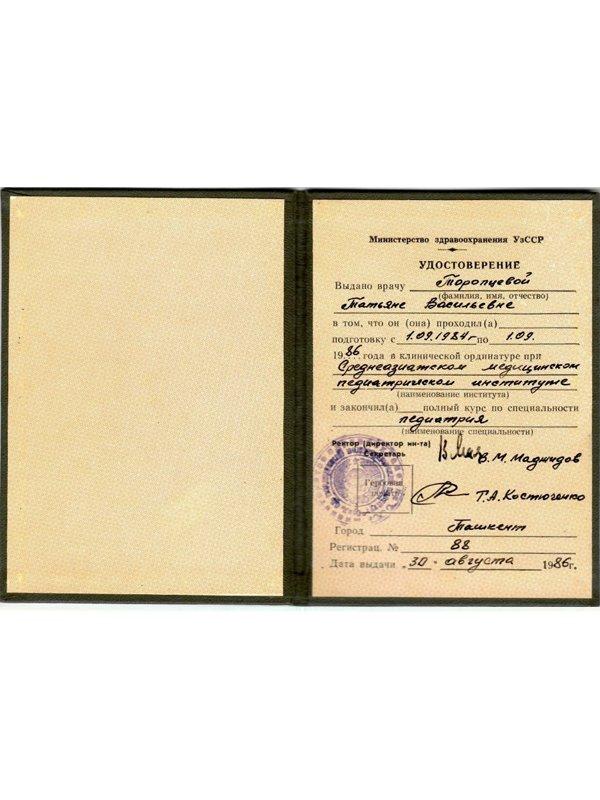 Министерство здравоохранения УзССР
УДОСТОВЕРЕНИЕ
Выдано врачу Торопцевой
(фамилия, имя, отчество)
Татьяне Васильевне
в том, что он (она) проходил(а)
подготовку с 1.09.1984г по 1.09.
1986. года в клинической ординатуре при
Среднеазиатском медицинском
педиатрическом институте
(наименование института)
и закончил(а) полный курс по специальности
педиатрия
(наименование специальности)
Ректор (директор ин-та)
В. М. Маджидов
Секретарь
Гербовая
Т.А. Костюченко
Город Ташкент
Регистрац. № 88
Дата выдачи „30“ августа 1986г.